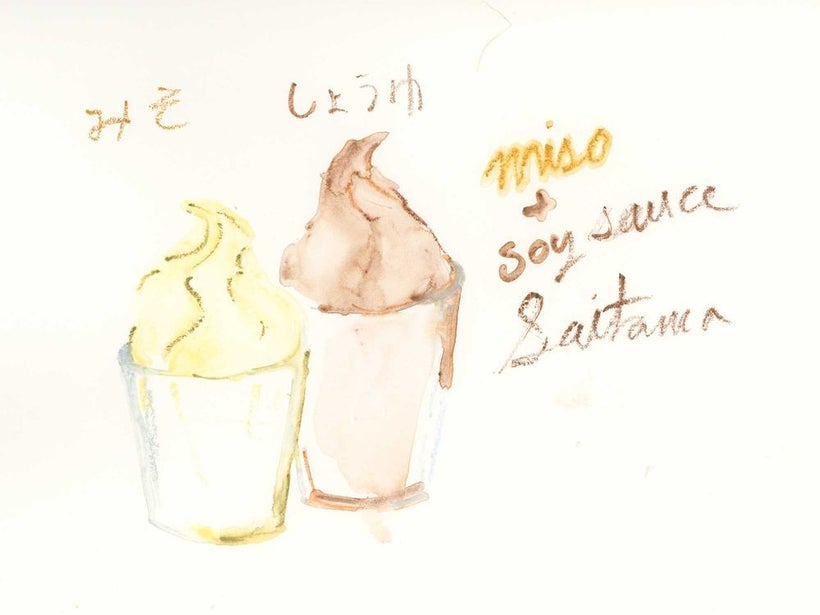 みそ
しょうゆ
miso
+
soy sauce
Saitama